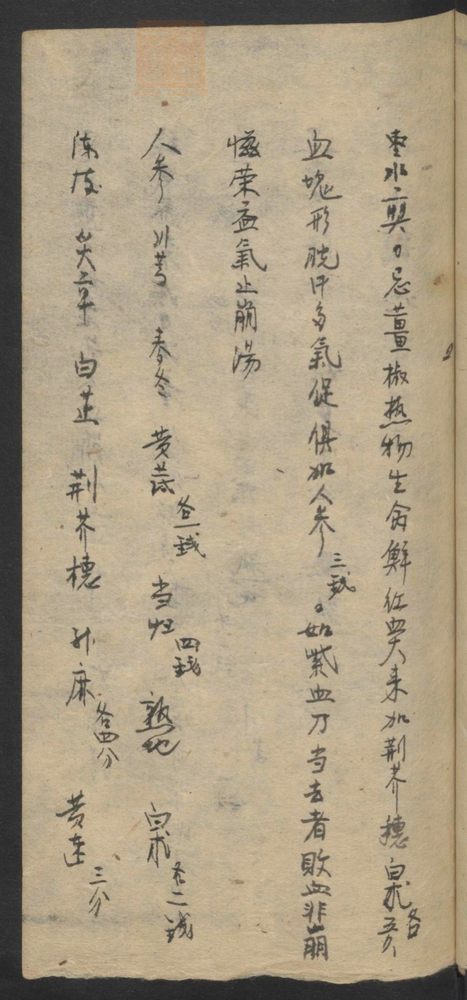 枣水煎。忌薑椒热物生冷鮮紅血大来加荆芥穗白术各五分
血塊形脱汗多氣促俱加人参三钱。如紫血乃当去者败血非崩
滋荣益氣止崩湯
人参 川芎 春冬 黄芪各一钱 当归四钱 熟地 白术各二钱
陈皮 炙草 白芷 荆芥穗 升麻各四分 黄连三分